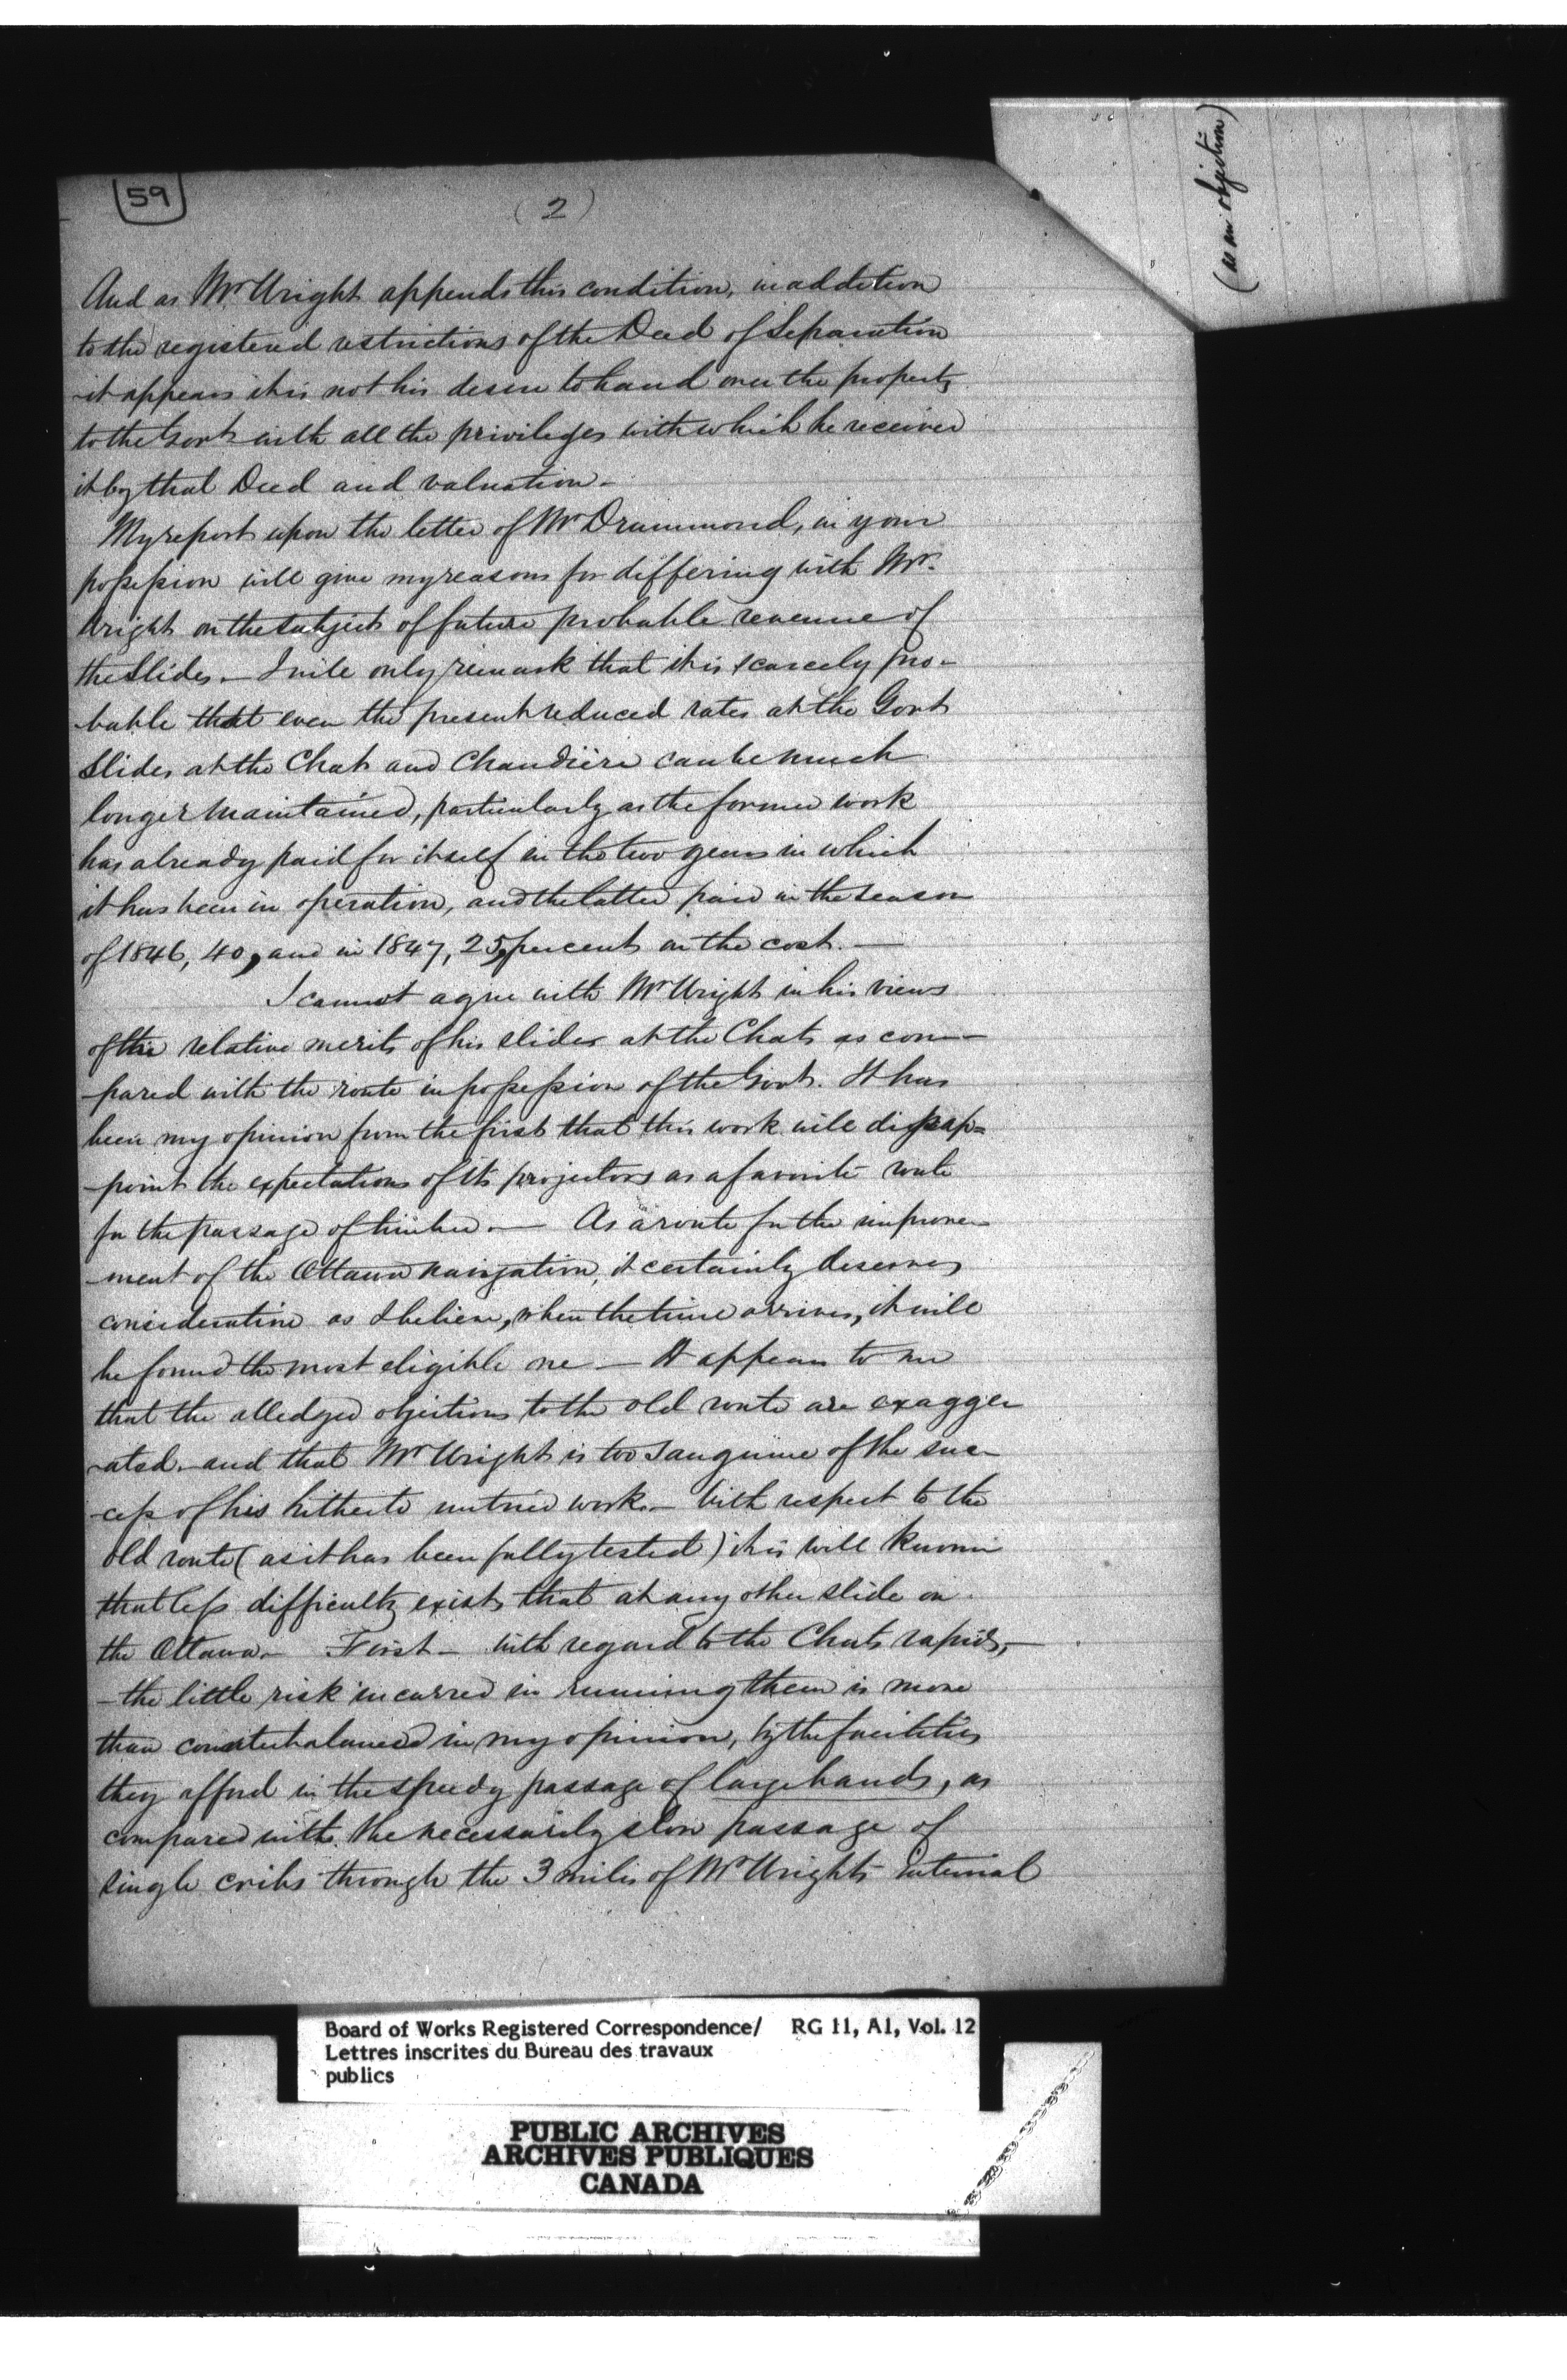 59
(2)
(as an objection)
And as Mr Wright appends this condition, in addition
to the registered restrictions of the Deed of Separation
it appears it is not his desire to hand over the property
to the Govt with all the privileges with which he received
it by that Deed and valuation -
My report upon the letter of Mr Drummond, in your
possession will give my reasons for differing with Mr.
Wright on the subject of future probable revenue of
the Slides. - I will only remark that it is scarcely pro-
-bable that even the present reduced rates at the Govt
Slides at the Chats and Chaudière can be much
longer maintained, particularly as the former work
has already paid for itself in the two years in which
it has been in operation, and the latter paid in the season
of 1846, 40, and in 1847, 25, per cent on the cost. —
I cannot agree with Mr Wright in his views
of the relative merits of his slides at the Chats as com-
-pared with the route in possession of the Govt. It has
been my opinion from the first that this work will disap=
-point the expectations of its projectors as a favorite route
for the passage of timber. — As a route for the improve-
-ment of the Ottawa navigation, it certainly deserves
consideration as I believe, when the time arrives, it will
be found the most eligible one — It appears to me
that the alledged objections to the old route are exagger
-ated. and that Mr Wright is too sanguine of the suc-
-cess of his hitherto untried work. - With respect to the
old route (as it has been fully tested) it is well known
that less difficulty exists that at any other slide on
the Ottawa - First - with regard to the Chats rapids, —
- the little risk incurred in running them is more
than counterbalanced in my opinion, by the facilities
they afford in the speedy passage of large bands, as
compared with the necessarily slow passage of
single cribs through the 3 miles of Mr Wright's internal
Board of Works Registered Correspondence/ RG 11, A1, Vol. 12
Lettres inscrites du Bureau des travaux
publics
PUBLIC ARCHIVES
ARCHIVES PUBLIQUES
CANADA